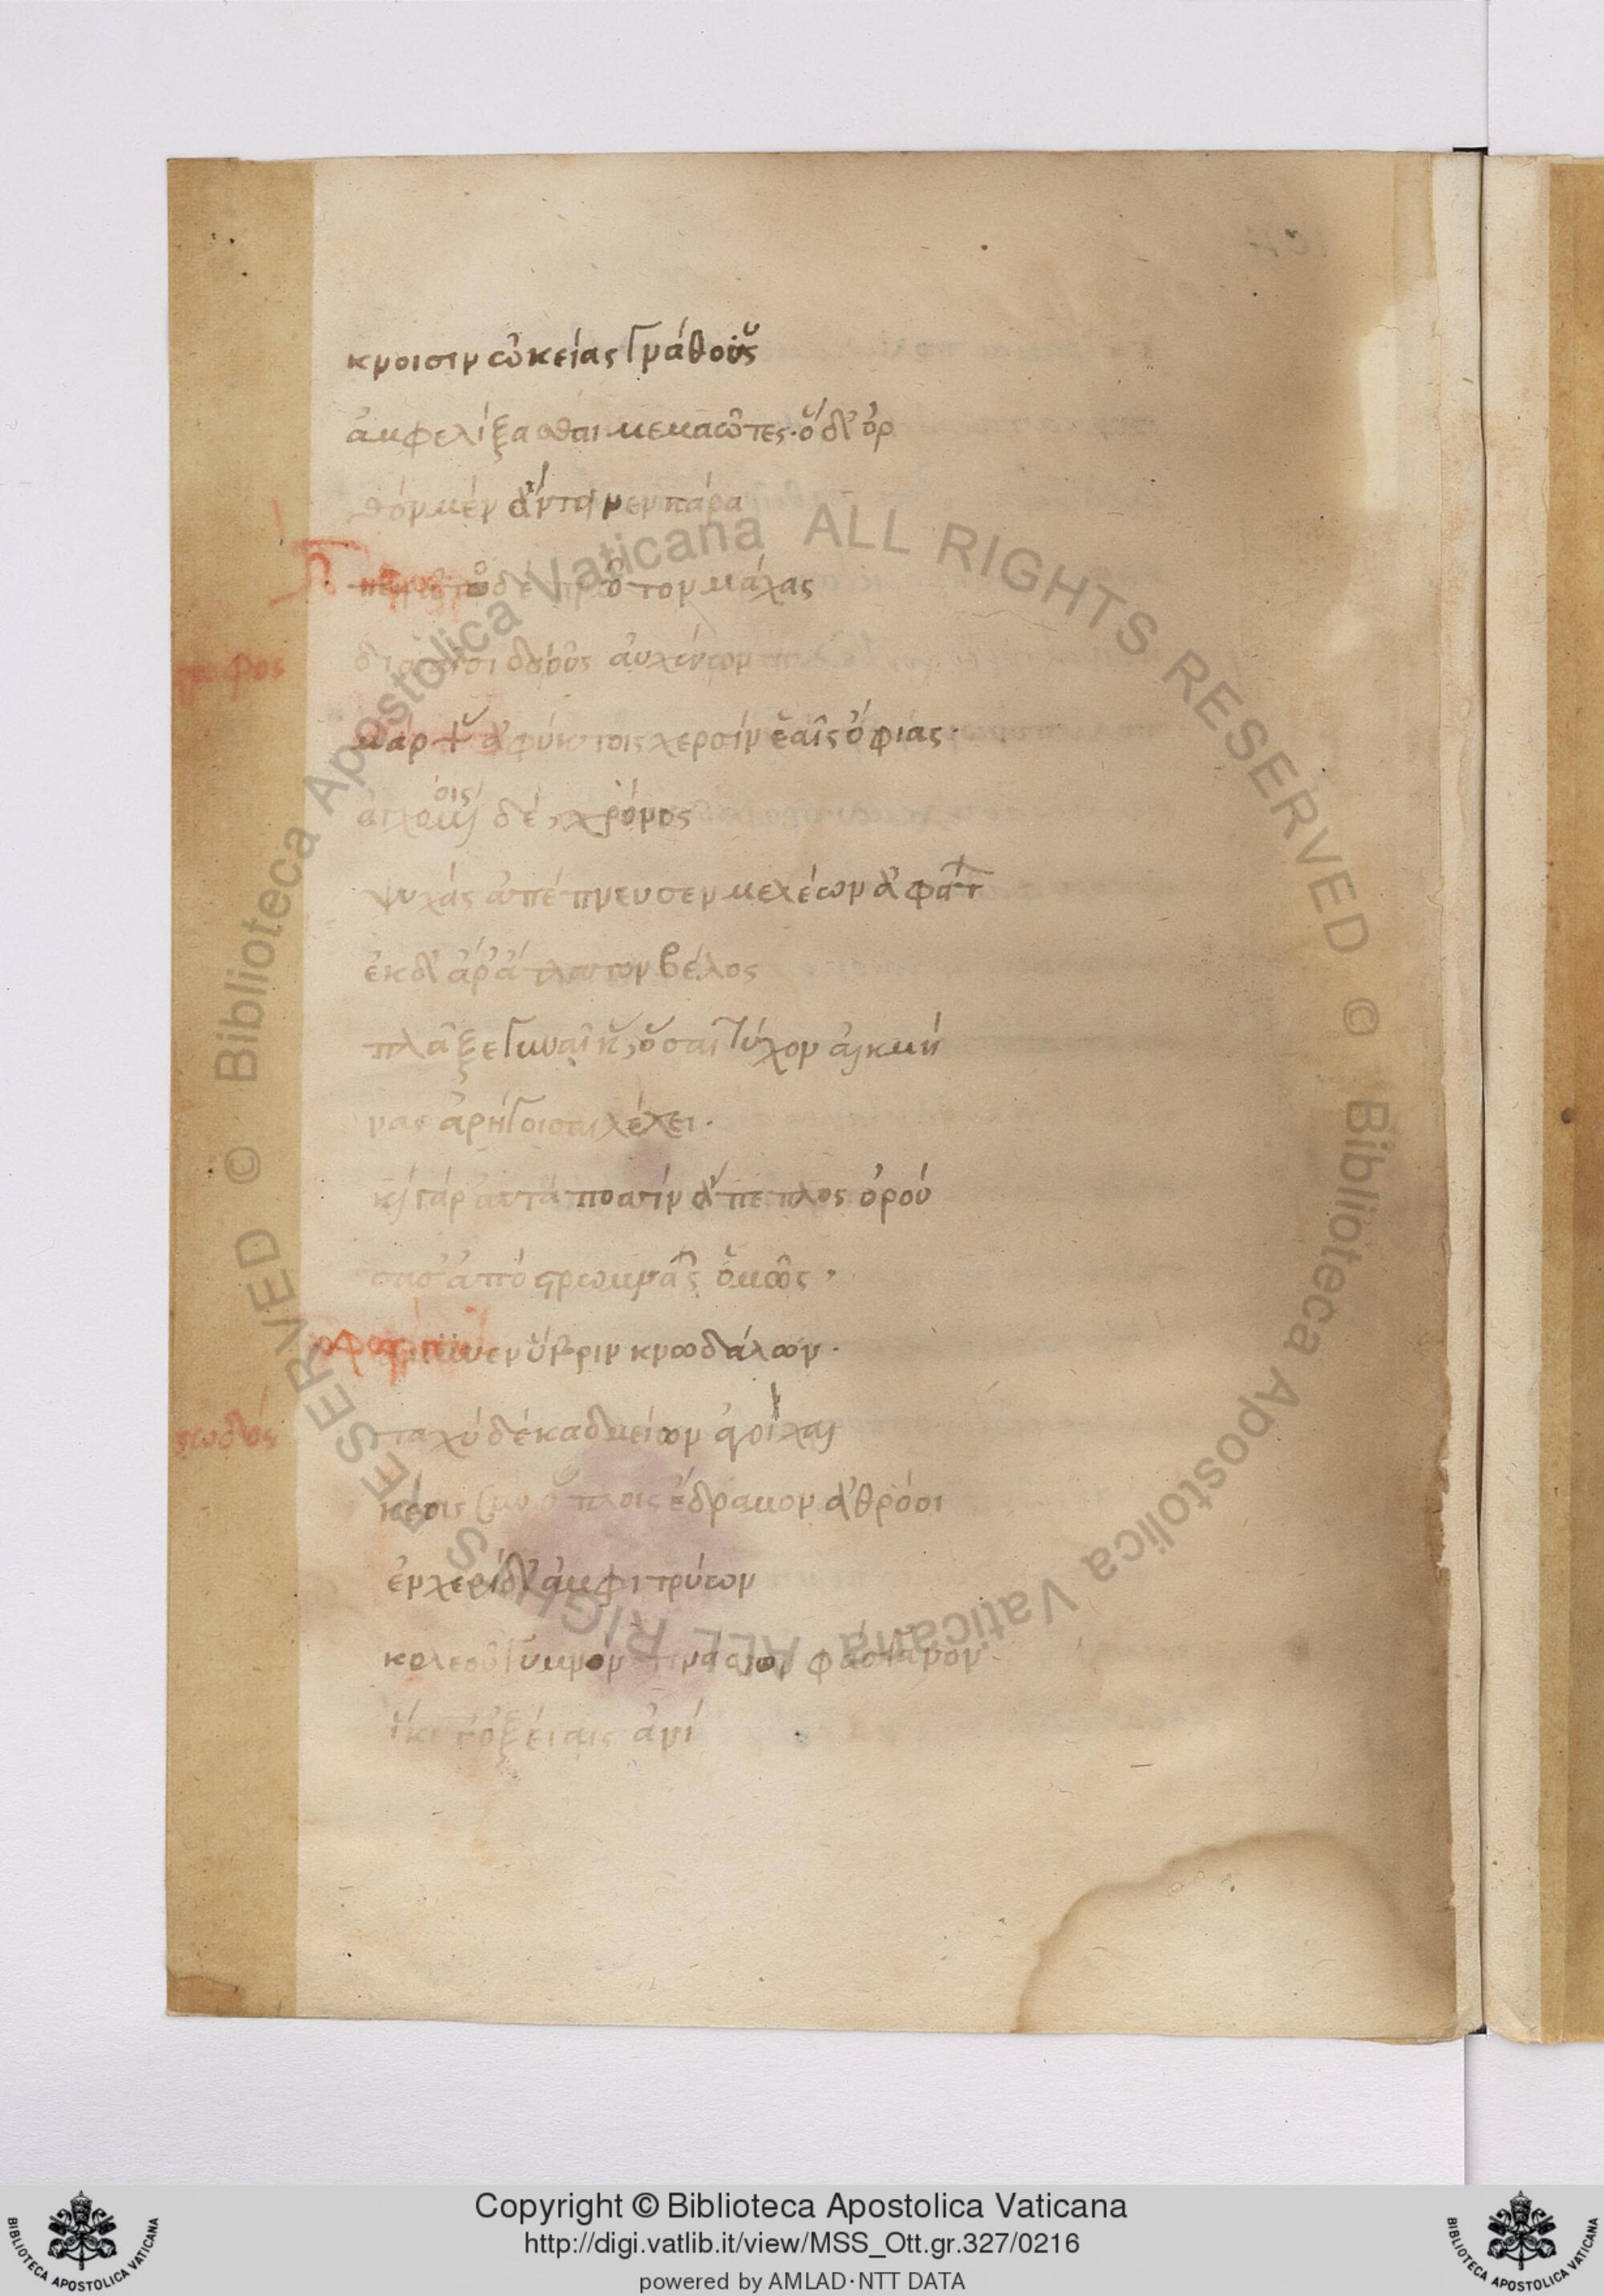 κνοισιν ὠκείας γνάθους
ἀμφελίξασθαι μεμαῶτες· ὁ δ' ὀρ
θὸν μὲν ἄντεινεν κάρα
πρῶτον μάχας
δισαῖσι δοιοὺς αὐχένων
μάρψ ἀφύκτοις χερσὶν ἑαῖς ὄφιας·
ἀγχομένοις δὲ, χρόνος
ψυχὰς ἀπέπνευσεν μελέων ἀφάτ
ἐκ δ' ἄρ' ἄτλατον βέλος
πλᾶξε γυναῖκας, ὅσαι τύχον ἀλκμή
νας ἀρήγοισαι λέχει·
καὶ γὰρ αὐτὰ ποσὶν ἄπεπλος ὀρού
σασ' ἀπὸ στρωμνᾶς ὅμως,
ὕβριν κνωδάλων·
ταχὺ δὲ καδμείων ἀγοὶ χαλ
κέοις σὺν ὅπλοις ἔδραμον ἀθρόοι
ἐν χερὶ δ' ἀμφιτρύων
κολεοῦ γυμνὸν τινάσσων φάσγανον
ἵκετ' ὀξείαις ἀνί
ἐπῳδός
© Biblioteca Apostolica Vaticana ALL RIGHTS RESERVED © Biblioteca Apostolica Vaticana ALL RIGHTS RESERVED
Copyright © Biblioteca Apostolica Vaticana
http://digi.vatlib.it/view/MSS_Ott.gr.327/0216
powered by AMLAD·NTT DATA
BIBLIOTECA APOSTOLICA VATICANA
BIBLIOTECA APOSTOLICA VATICANA